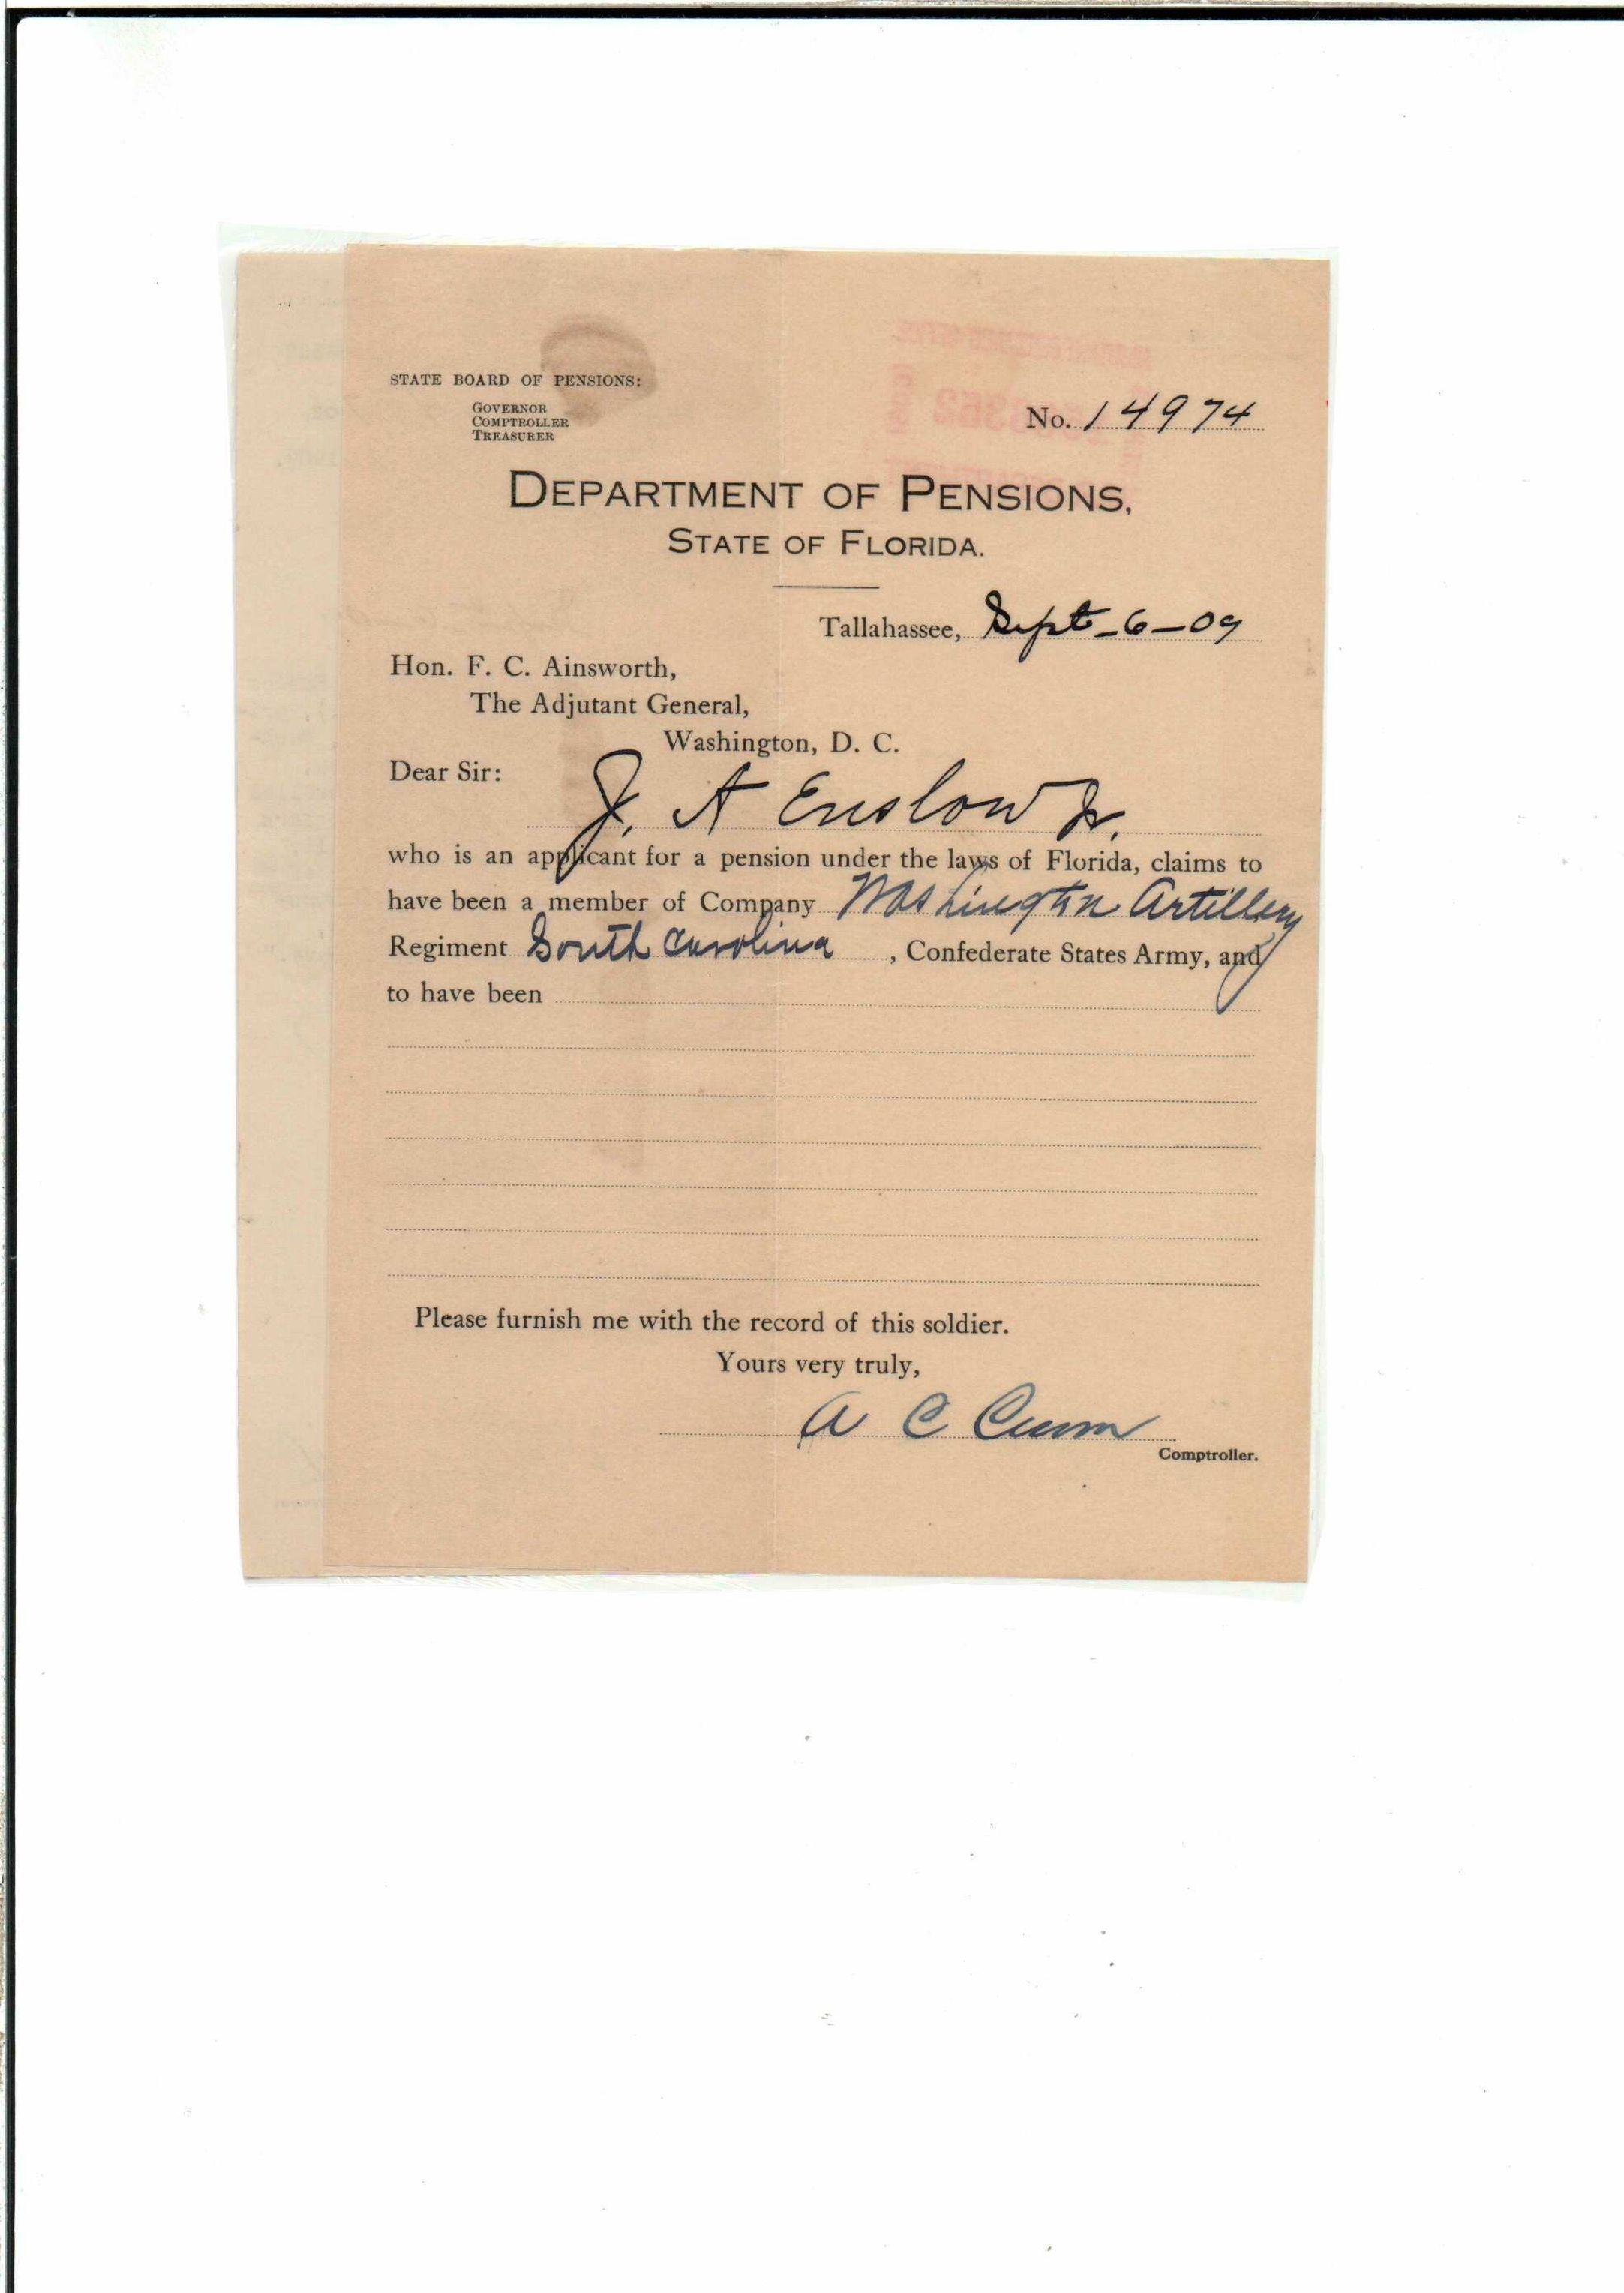 STATE BOARD OF PENSIONS:
GOVERNOR
COMPTROLLER
TREASURER
No. 14974
DEPARTMENT OF PENSIONS,
STATE OF FLORIDA.
Tallahassee, Sept-6-09
Hon. F. C. Ainsworth,
The Adjutant General,
Washington, D. C.
Dear Sir:
J. A Enslow Jr.
who is an applicant for a pension under the laws of Florida, claims to
have been a member of Company Washington Artillery
Regiment South Carolina, Confederate States Army, and
to have been
Please furnish me with the record of this soldier.
Yours very truly,
A C Croom
Comptroller.